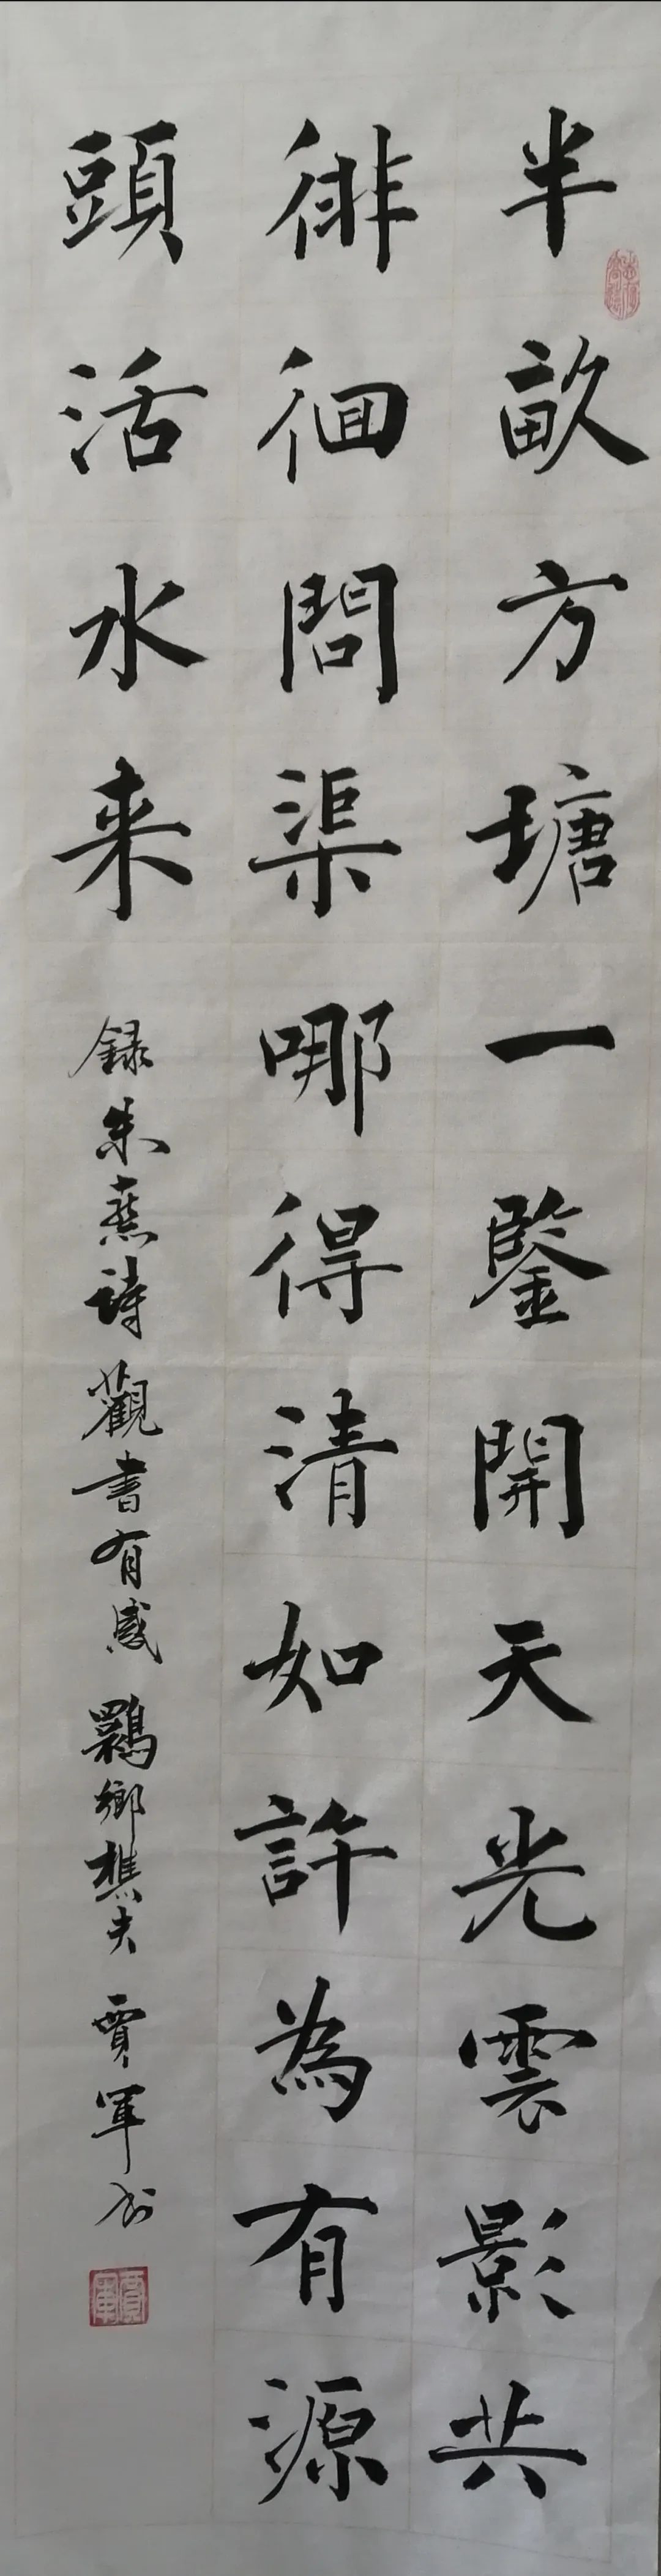 半畝方塘一鑒開天光雲影共
徘徊問渠哪得清如許為有源
頭活水来
録朱熹詩觀書有感 鶚鄉樵夫 賈軍书
賈軍